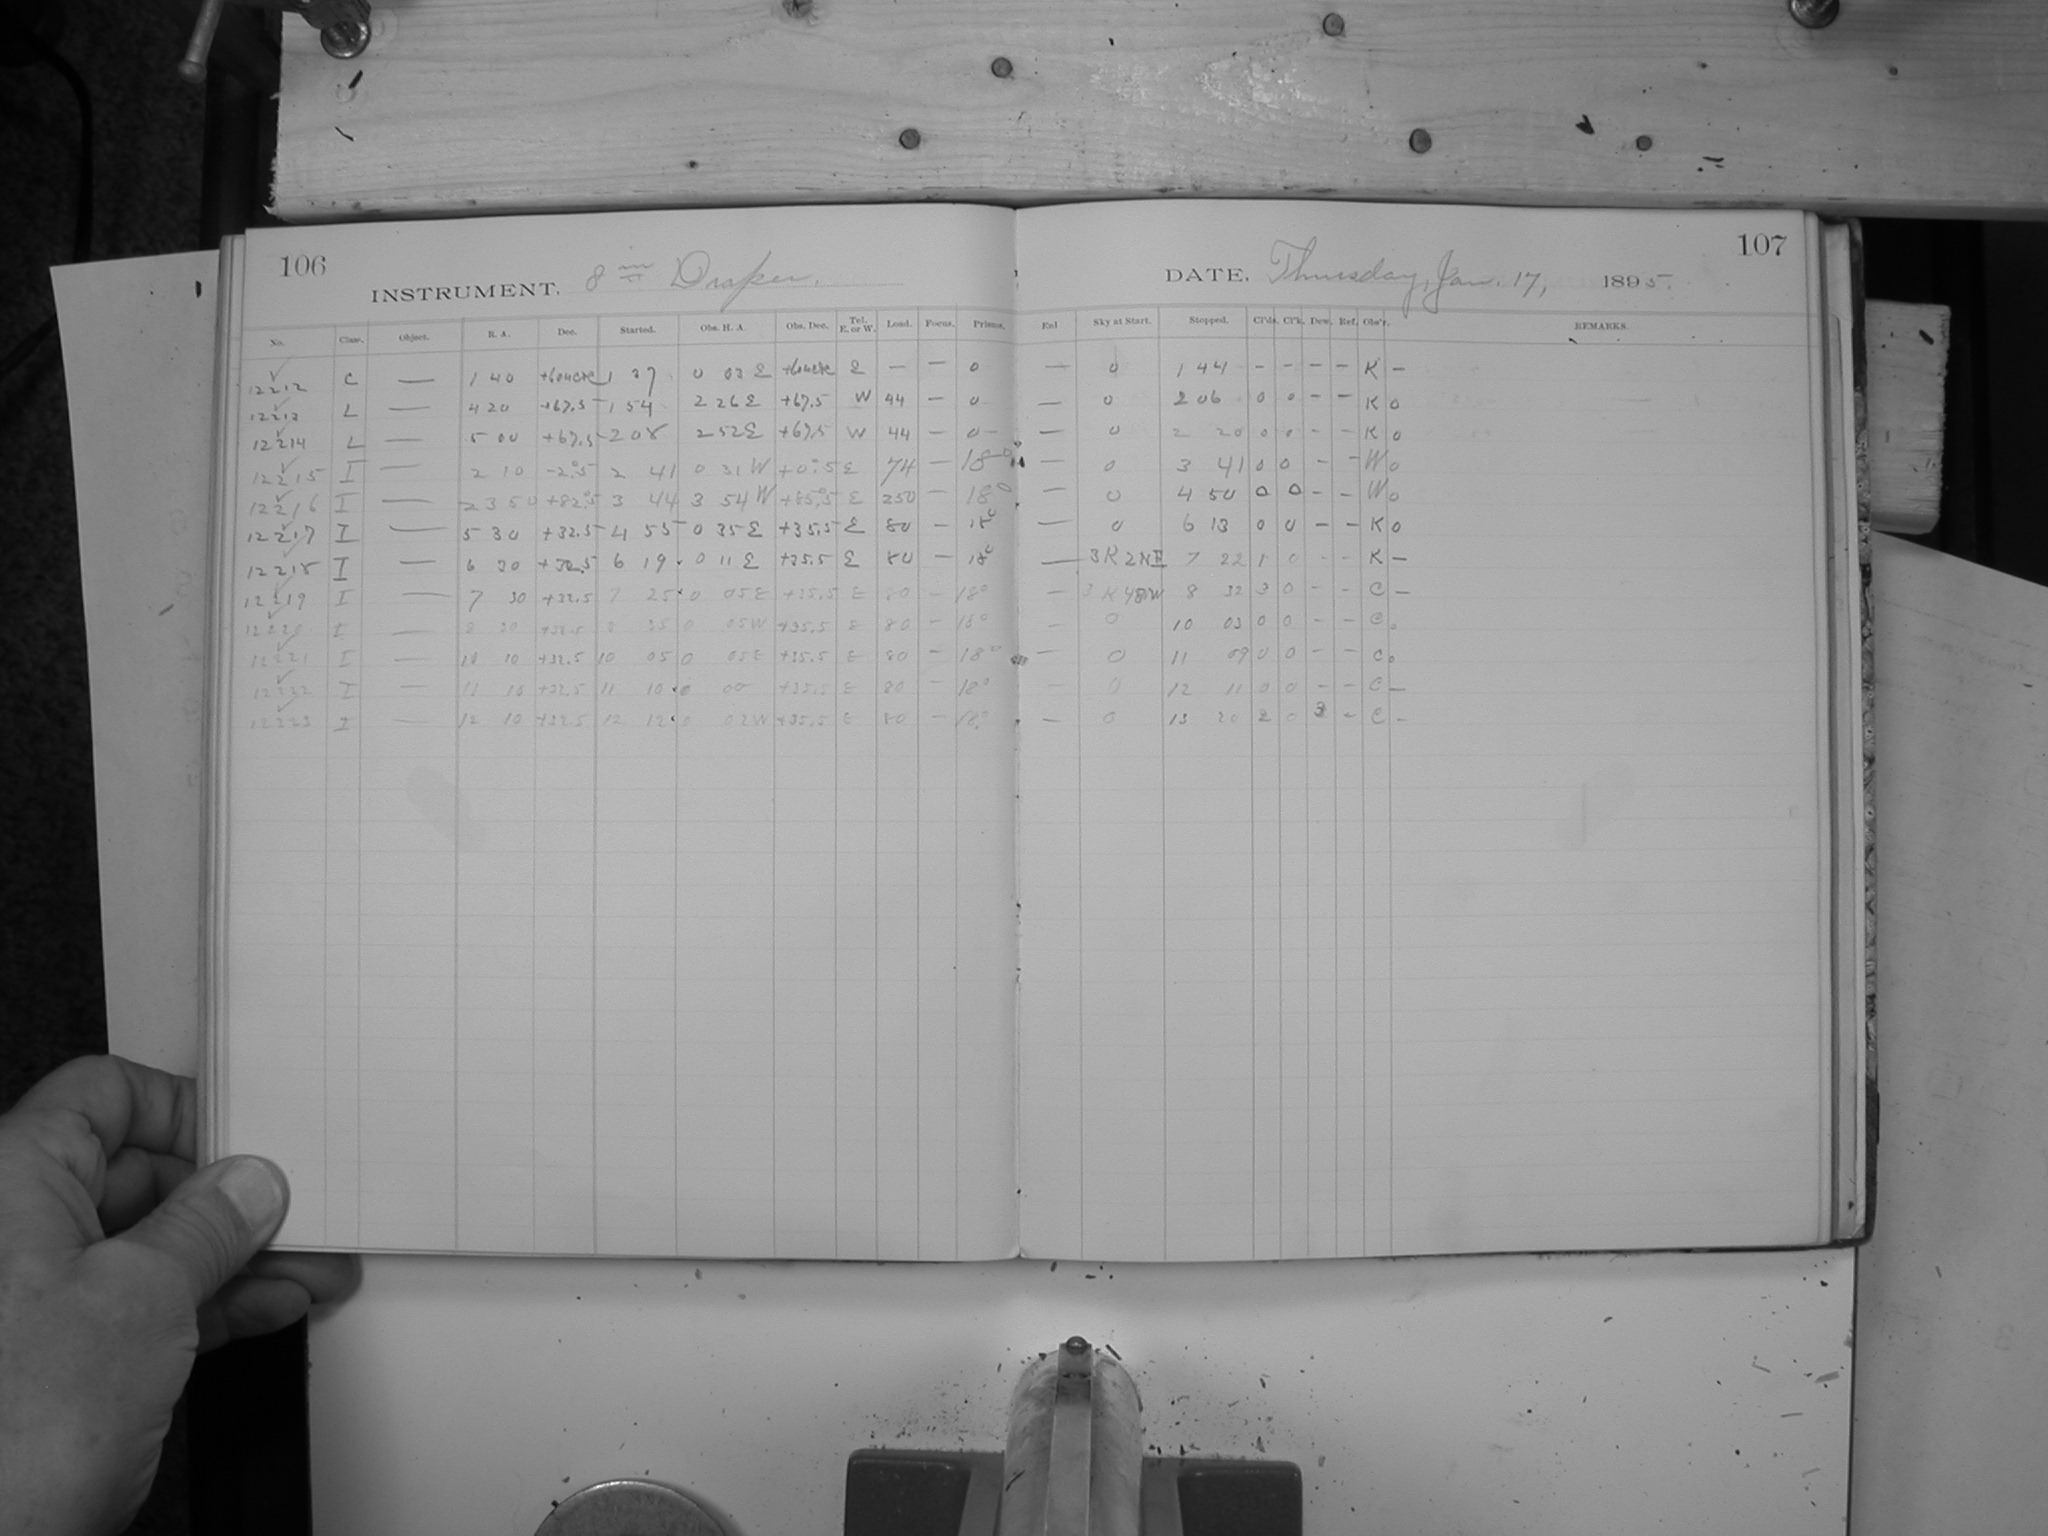 106
INSTRUMENT. 8 in Draper.
DATE. Thursday, Jan. 17, 1895.
107
No. Class. Object. R. A. Dec. Started. Obs. H. A. Obs. Dec. Tel. E. or W. Load. Focus. Prisms. Enl Sky at Start. Stopped. Cl'ds. Cl'k. Dew. Ref. Obs'r. REMARKS.
12212 C — 1 40 1 37 0 03 E E — — 0 — 0 1 44 - - - - K -
12213 L — 4 20 +67.5 1 54 2 26 E +67.5 W 44 — 0 — 0 2 06 0 0 - - K 0
12214 L — 5 00 +67.5 2 08 2 52 E +67.5 W 44 — 0 — 0 2 20 0 0 - - K 0
12215 I — 2 10 -2.5 2 41 0 31 W +0.5 E 74 — 18° — 0 3 41 0 0 - - W 0
12216 I — 23 50 +82.5 3 44 3 54 W +85.5 E 250 — 18° — 0 4 50 0 0 - - W 0
12217 I — 5 30 +32.5 4 55 0 35 E +35.5 E 80 — 18° — 0 6 13 0 0 - - K 0
12218 I — 6 30 +32.5 6 19 0 11 E +35.5 E 80 — 18° — 3 K 2 NE 7 22 1 0 - - K -
12219 I — 7 30 +32.5 7 25 0 05 E +35.5 E 80 — 18° — 8 32 3 0 - - C -
12220 I — 8 30 +32.5 8 35 0 05 W +35.5 E 80 — 18° — 0 10 03 0 0 - - C 0
12221 I — 10 10 +32.5 10 05 0 05 E +35.5 E 80 — 18° — 0 11 09 0 0 - - C 0
12222 I — 11 10 +32.5 11 10 0 00 +35.5 E 80 — 18° — 0 12 11 0 0 - - C -
12223 I — 12 10 +32.5 12 12 0 02 W +35.5 E 80 — 18° — 0 13 20 2 0 3 - C -